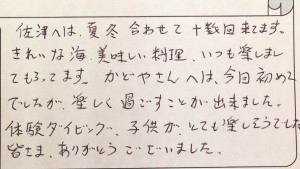 佐津へは、夏冬合わせて十数回来てます。
きれいな海、美味しい料理、いつも楽しまし
てもらってます。かどやさんへは、今回初めて
でしたが、楽しく過ごすことが出来ました。
体験ダイビング、子供が、とても楽しそうでした
皆さま、ありがとうございました。